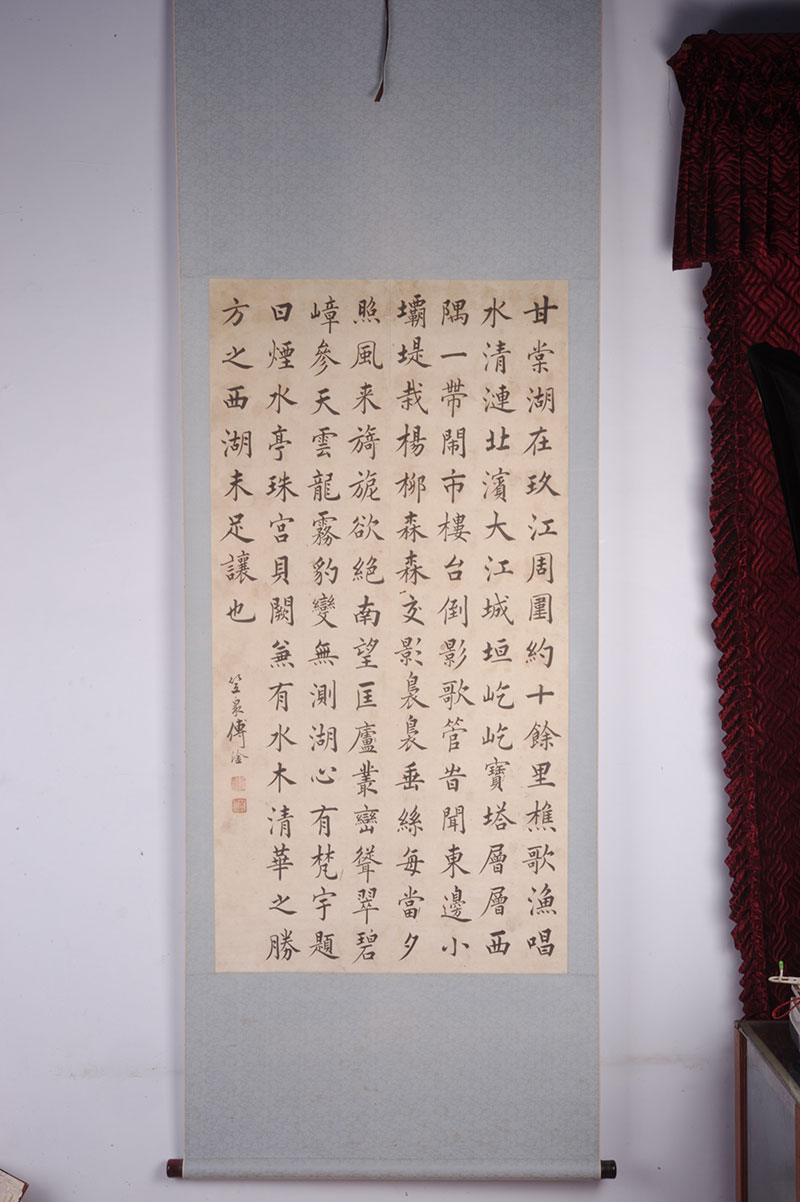 甘棠湖在玖江周圍約十餘里樵歌漁唱
水清漣北濱大江城垣屹屹寶塔層層西
隅一帶閙市樓台倒影歌管時聞東邊小
壩堤栽楊柳森森交影裊裊垂絲每當夕
照風来旖旎欲絕南望匡廬叢巒聳翠碧
嶂參天雲龍霧豹變無測湖心有梵宇題
曰煙水亭珠宮貝闕兼有水木清華之勝
方之西湖未足讓也
笠泉傅淦